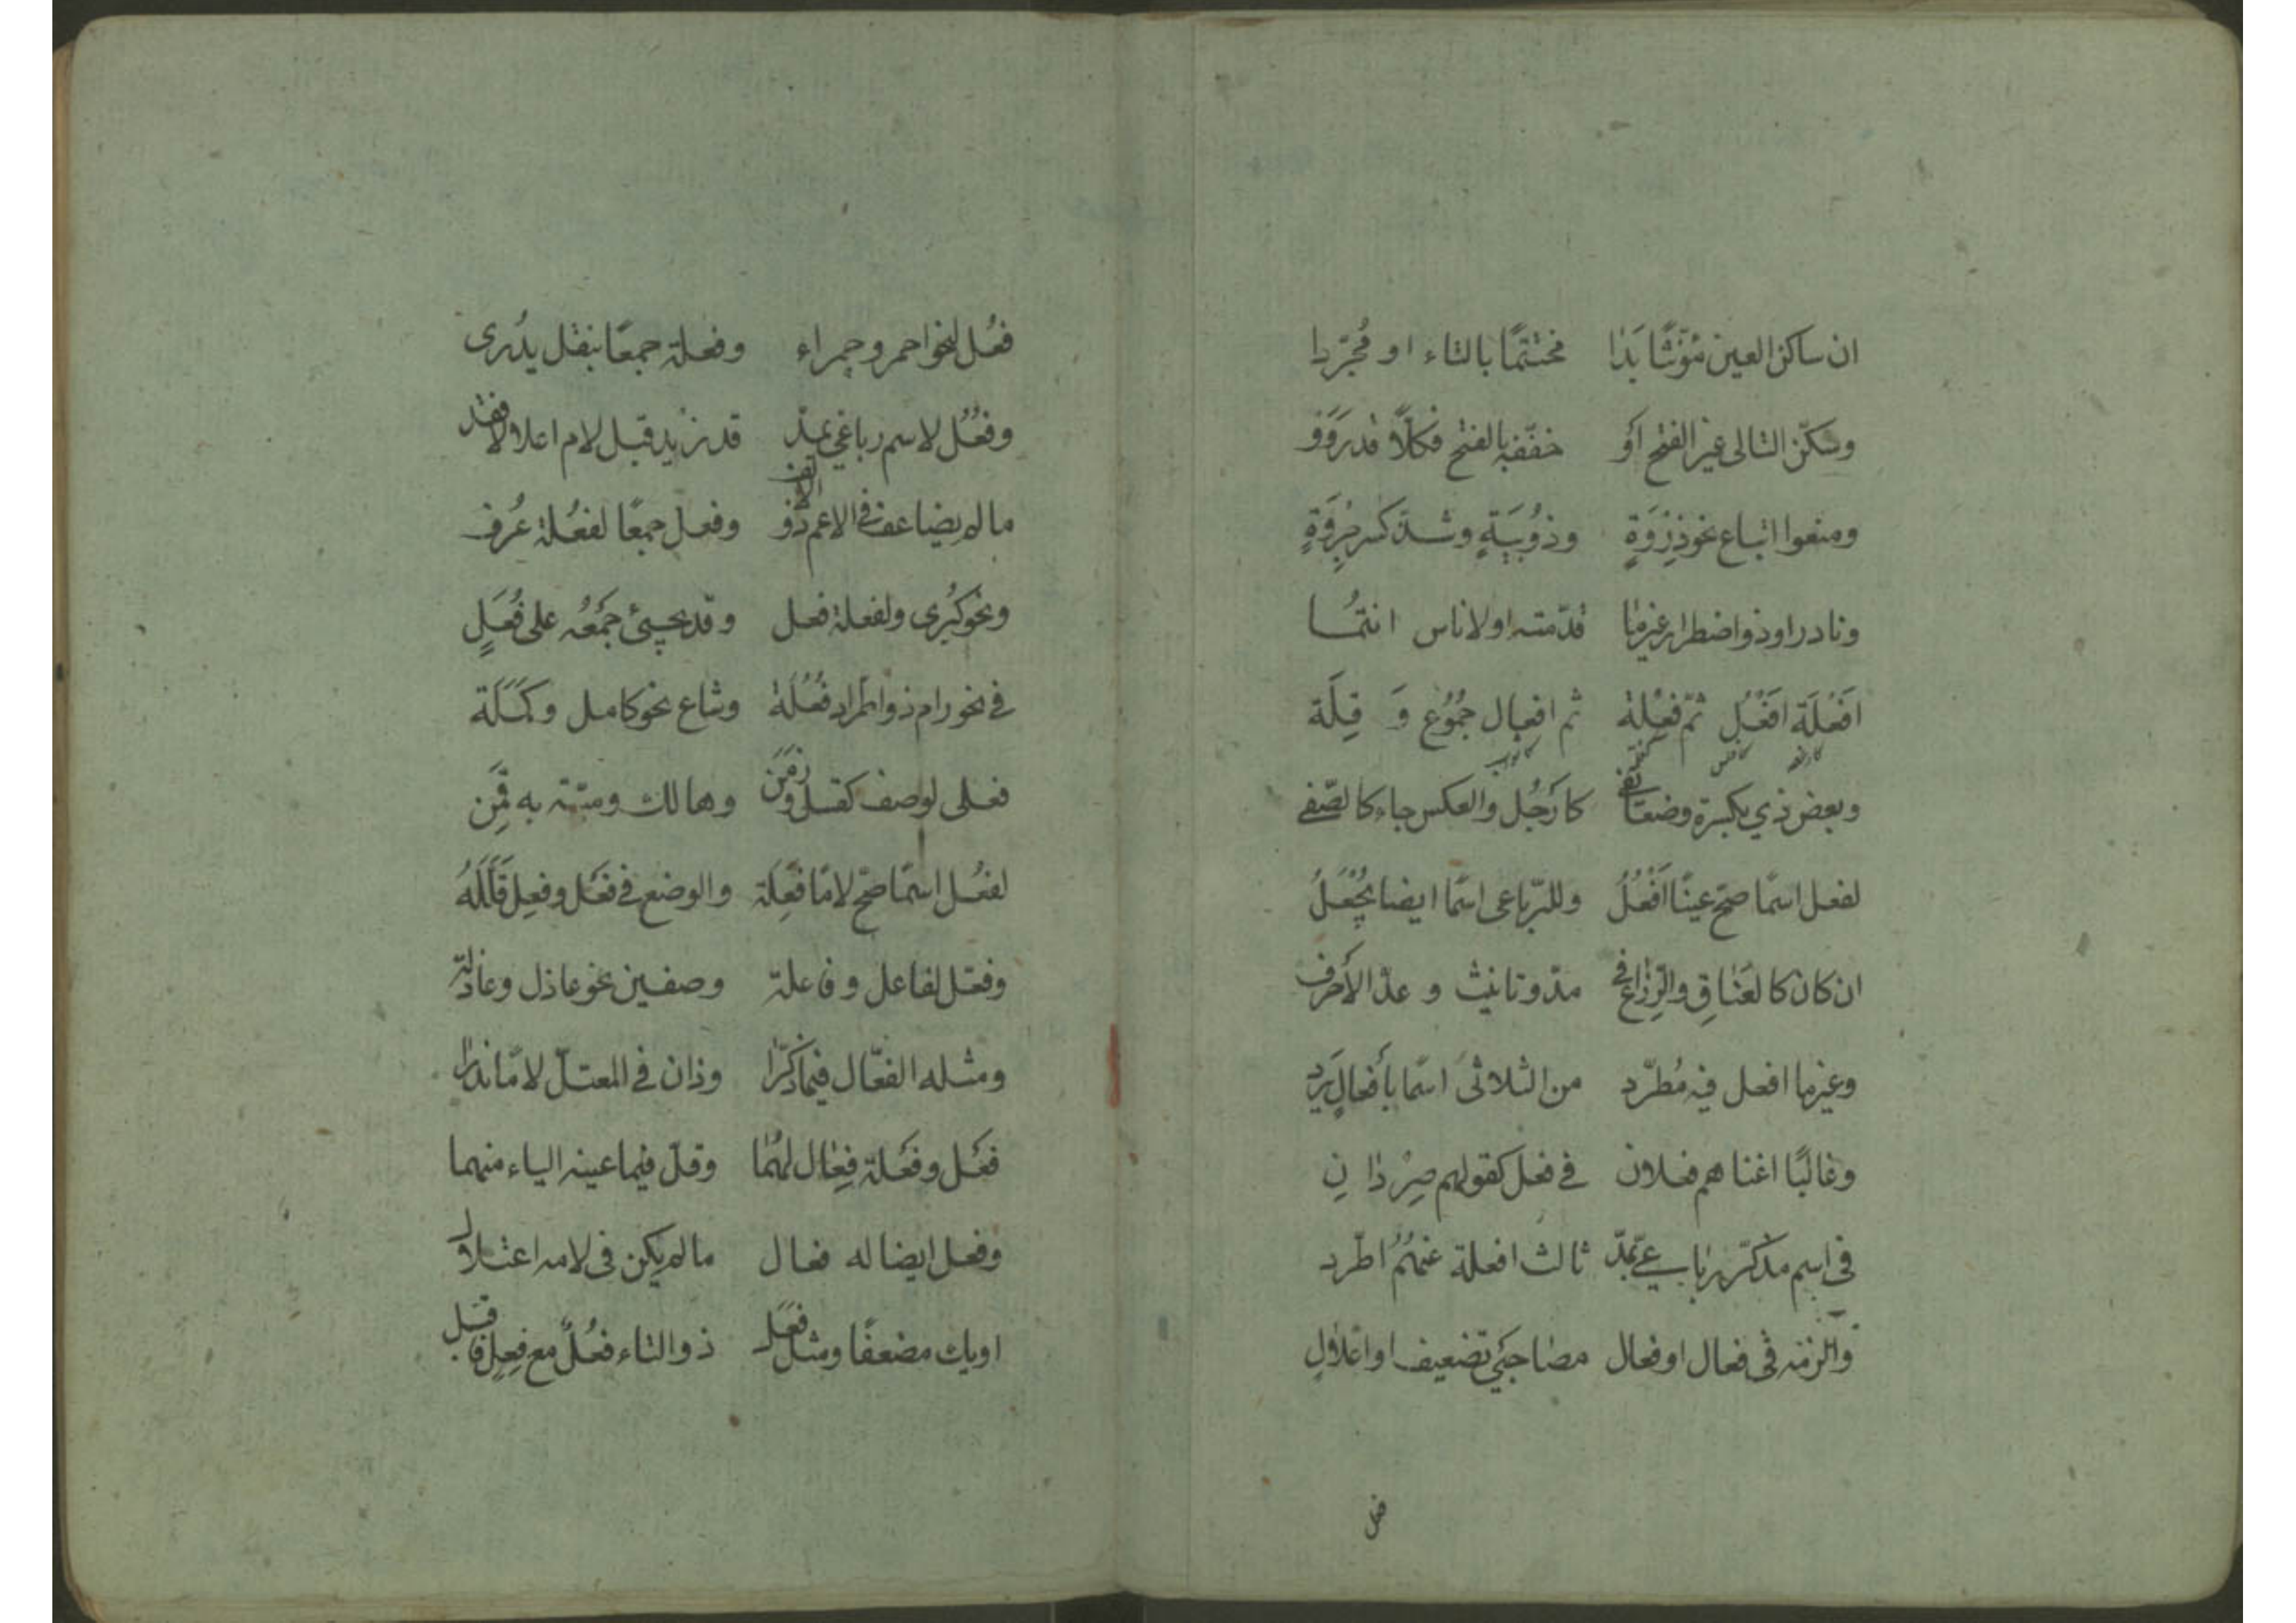 ان ساكن العين مؤنثًا بَدَا مختتمًا بالتاء او مُجرّدا
وسكّن التالى غير الفتح أو خفّفه بالفتح فكلًّا قد رَوَوْ
ومنعوا اتباع نحو ذِرْوَةٍ وذُوبْيَةٍ وشذّ كسر جِرْوَةٍ
ونادر او ذو اضطرار غير ما قدّمته او لاناس انتمُا
اَفْعِلَة افْعُلُ ثمّ فِعْلة ثم افعال جُمُوُع وَ قِلَة
وبعض ذي بكثرة وضعًا يفى كارَجُل والعكس جاء كالصّفى
لفعل اسمًا صحّ عينًا اَفْعُلُ وللرّباعى اسمًا ايضا يُجْعَلُ
ان كان كالعَنَاقِ والذِّراع فى مدّ وتانيث و عدّ الأحرف
وغيرما افعل فيه مُطّرد من الثلاثى اسمًا بأفعالٍ يَرِد
وغالبًا اغناهم فعلان فى فعل كقولهم صِرْدانِ
فى اسم مذكّر رباعيّ بمدّ ثالث افعلة عنهُمُ اطّرد
والزمه فى فعال او فعال مصاحبَي تضعيف او اعلالِ
فعل
فُعل لنحو احمر وحمراء وفعلة جمعًا بنقل يدُرى
وفُعُل لاسم رباعي بمدّ قد زيد قبل لام اعلالا فقد
ما لم يضاعف فى الاعم ذو الالف وفعل جمعًا لفُعْلة عُرف
ونحو كُبْرى ولفعلة فعل وقد يجيئ جَمْعُه على فُعَلٍ
فى نحو رام ذو اطّراد فُعَلَة وشاع نحو كامل وكَمَلَة
فعلى لوصف كقتل وزَمَن وهالك وميّت به قَمِن
لفُعْل اسمًا صحّ لامًا فِعَلَة والوضع فى فَعْل وفِعِل قَلَّلَهُ
وفعّل لفاعل وفاعلة وصفين نحو عاذل وعاذلة
ومثله الفعّال فيما ذُكِّرا وذان فى المعتلّ لامًا ندرا
فَعْل وفَعْلة فِعَال لهُما وقلّ فيما عينه الياء منهما
وفعل ايضا له فعال ما لم يكن فى لامه اعتلال
او يك مضعفًا ومثل فعَل ذو التاء فُعُلٌ مع فِعِل فاقبل